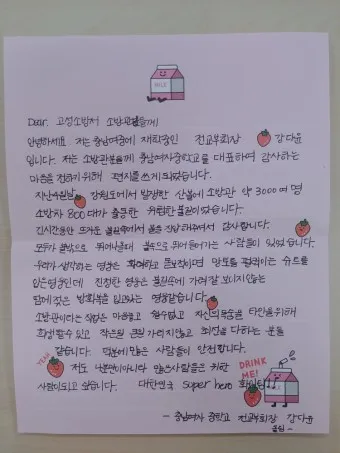 MILK
Dear. 고성소방서 소방관님들께
안녕하세요 저는 충남여중에 재학중인 전교부회장 강다윤
입니다. 저는 소방관분들께 충남여자중학교를 대표하여 감사하는
마음을 전하기 위해 편지를 쓰게 되었습니다.
지난 강원도에서 발생한 산불에 소방관 약 3000여 명
소방차 800대가 출동한 위험한 불길이었습니다.
긴시간동안 뜨거운 불길속에서 몸을 감사합니다.
모두가 밖으로 뛰쳐나올때 불속으로 뛰어들어가는 사람들이 있었습니다.
우리가 생각하는 영웅은 화려하고 망토를 펄럭이는 슈트를
입은영웅인데 진정한 영웅은 불길속에 가려잘 보이지않는
방화복을 입고있는 영웅같습니다.
소방관이라는 직업은 자신의 목숨을 타인을 위해
희생할수 있고 작은일 큰일 가리지않고 최선을 다하는 분들
같습니다. 덕분에 많은 사람들이 안전합니다.
YEAH!
DRINK ME!
저도 많은사람들은 위한
사람이되고 싶습니다. 대한민국 super hero 화이팅!
- 충남여자 중학교 전교부회장 강다윤 올림 -